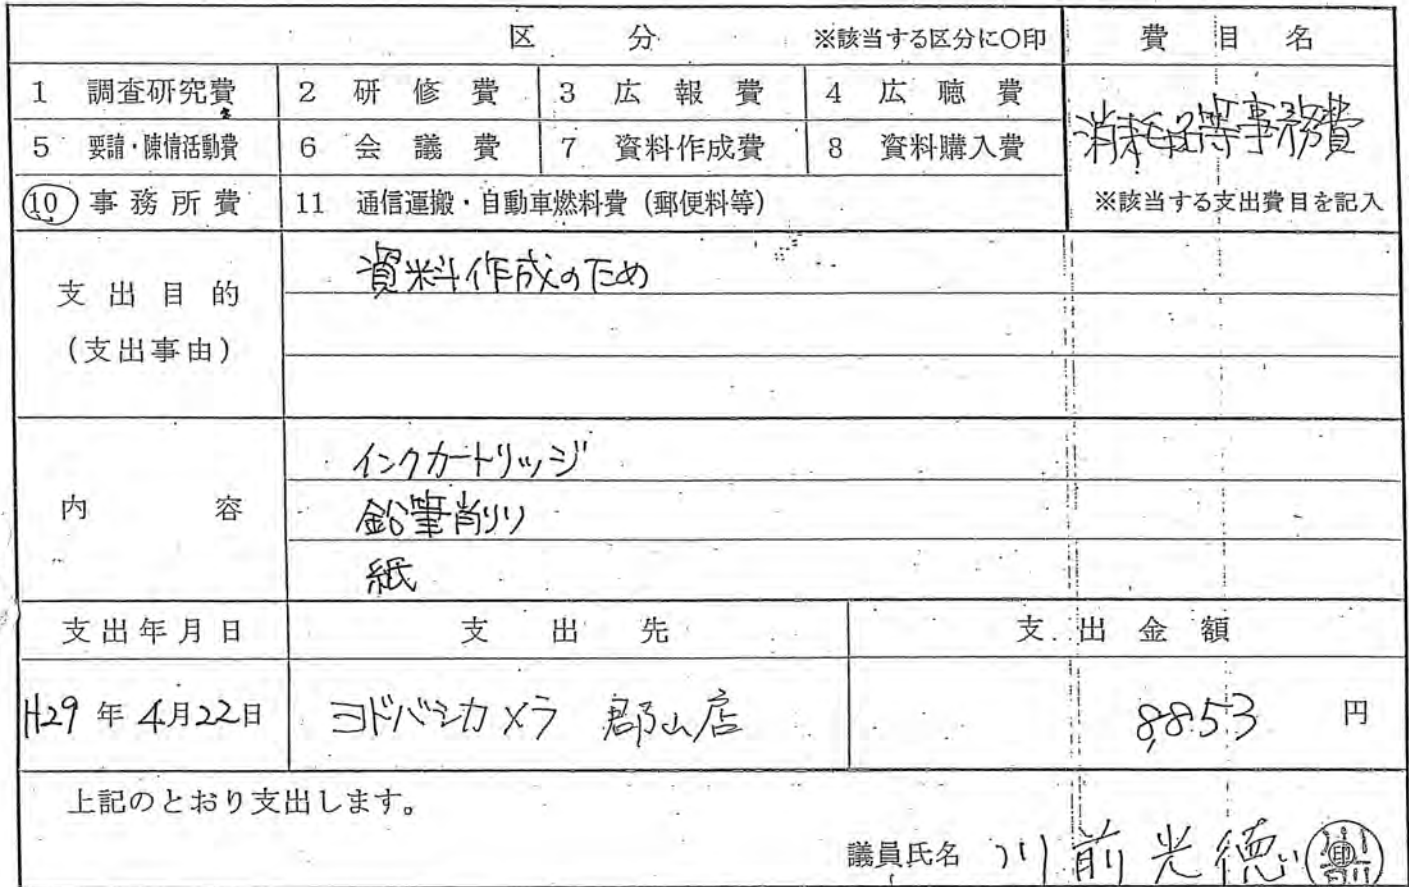 区 分 ※該当する区分に○印 費 目 名
1 調査研究費 2 研 修 費 3 広 報 費 4 広 聴 費 消耗品等事務費
5 要請・陳情活動費 6 会 議 費 7 資料作成費 8 資料購入費
10 事務所費 11 通信運搬・自動車燃料費(郵便料等) ※該当する支出費目を記入
支出目的 資料作成のため
(支出事由)
インクカートリッジ
内 容 鉛筆削り
紙
支出年月日 支 出 先 支 出 金 額
H29年4月22日 ヨドバシカメラ 郡山店 8,853 円
上記のとおり支出します。
議員氏名 川前光徳 印